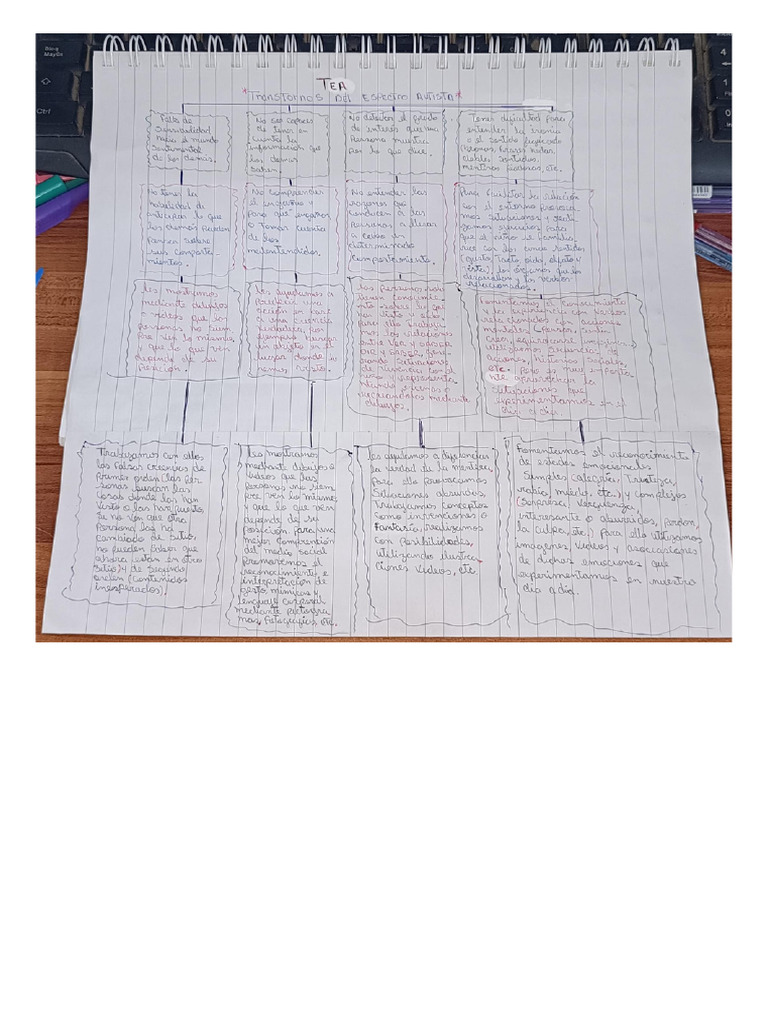 TEA
*TRANSTORNOS DEL ESPECTRO AUTISTA*
Falta de
sensibilidad
hacia el mundo
sentimental
de los demas.
No ser capaces
de tener en
cuenta la
información que
los demas
saben.
No detectar el
de interes que una
Persona muestra
por lo que dice.
Tener dificultad para
entender la ironía
o el sentido figurado
Bromas, frases
dobles sentidos,
mentiras piadosas, etc.
No tener la
habilidad de
anticipar lo que
los demas pueden
pensar sobre
sus comporta-
mientos.
No comprender
el
para que
o tomar cuenta
de los
malentendidos.
No entender las
razones que
conducen a las
personas a llevar
a cabo un
determinado
comportamiento.
Para facilitar la relación
con el entorno
mos situaciones y reali-
zamos ejercicios para
que el niño se familia-
rice con los cinco sentidos
(gusto, tacto, oído, olfato y
vista), los órganos que los
desarrollan y los verbos
relacionados.
Les mostramos
mediante dibujos
o videos que las
personas no siem
pre ven lo mismo,
y que lo que ven
depende de su
posición.
Les ayudamos a
predecir una
acción en base
a una creencia
verdadera, por
ejemplo
un objeto en el
lugar donde lo
hemos visto.
Las personas solo
tienen conocimie
nto sobre lo que
han visto y
para ello trabaja
mos las relaciones
entre ver y saber
oír y saber,
situaciones
de
mediante
dibujos.
Fomentamos el conocimiento
y la experiencia con verbos
relacionados con acciones
mentales (pensar,
creer, equivocarse, imaginar)
utilizamos secuencias de
acciones, historias sociales,
etc. Pero es muy importa
nte aprovechar las
situaciones que
experimentamos en el
día a día.
Trabajamos con ellos
las falsas creencias de
primer orden (las per
sonas buscan las
cosas donde las han
visto o las han puesto,
si no ven que otra
persona las ha
cambiado de sitio,
no pueden saber que
ahora están en otro
sitio) y de segundo
orden (contenidos
inesperados).
Les mostramos
mediante dibujos o
videos que las
personas no siem
pre ven lo mismo,
y que lo que ven
depende de su
posición, para una
mejor comprensión
del medio social
promovemos el
reconocimiento e
interpretación de
gesto, mímicas y
lenguaje corporal
mediante pictogra
mas, fotografías, etc.
Les ayudamos a diferenciar
la verdad de la mentira,
para ello provocamos
situaciones absurdas,
trabajamos conceptos
como intenciones o
Fantasía, realizamos
con posibilidades,
utilizando ilustra
ciones videos, etc.
Fomentamos el reconocimiento
de estados emocionales
simples (alegría, tristeza,
rabia, miedo, etc.) y complejos
(sorpresa, vergüenza,
interesante o aburrido, perdon,
la culpa, etc.) para ello utilizamos
imagenes, videos y asociaciones
de dichas emociones que
experimentamos en nuestro
día a día.